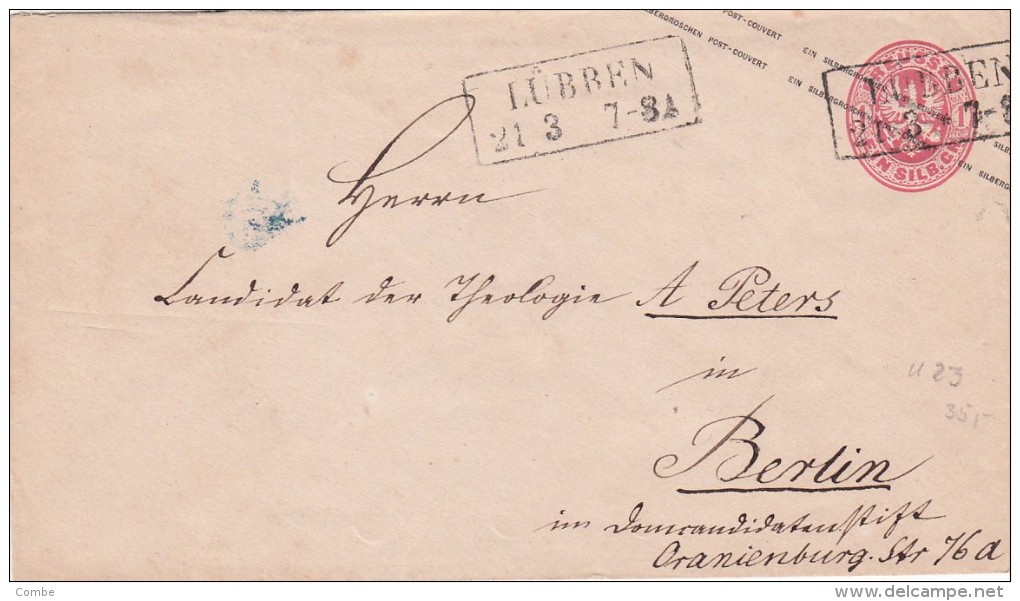 POST-COUVERT
SILBERGROSCHEN POST-COUVERT EIN SILBERGROSCHEN
EIN SILBERGROSCHEN
EIN SILBERG
PREUSSEN
EIN SILB. GR.
LÜBBEN
21 3 7-8A
LÜBBEN
21 3 7-8
Herrn
Candidat der Theologie A Peters
in
Berlin
im Domcandidatenstift
Oranienburg. Str 76 a
U 23
35,-
Combe
delcampe.net